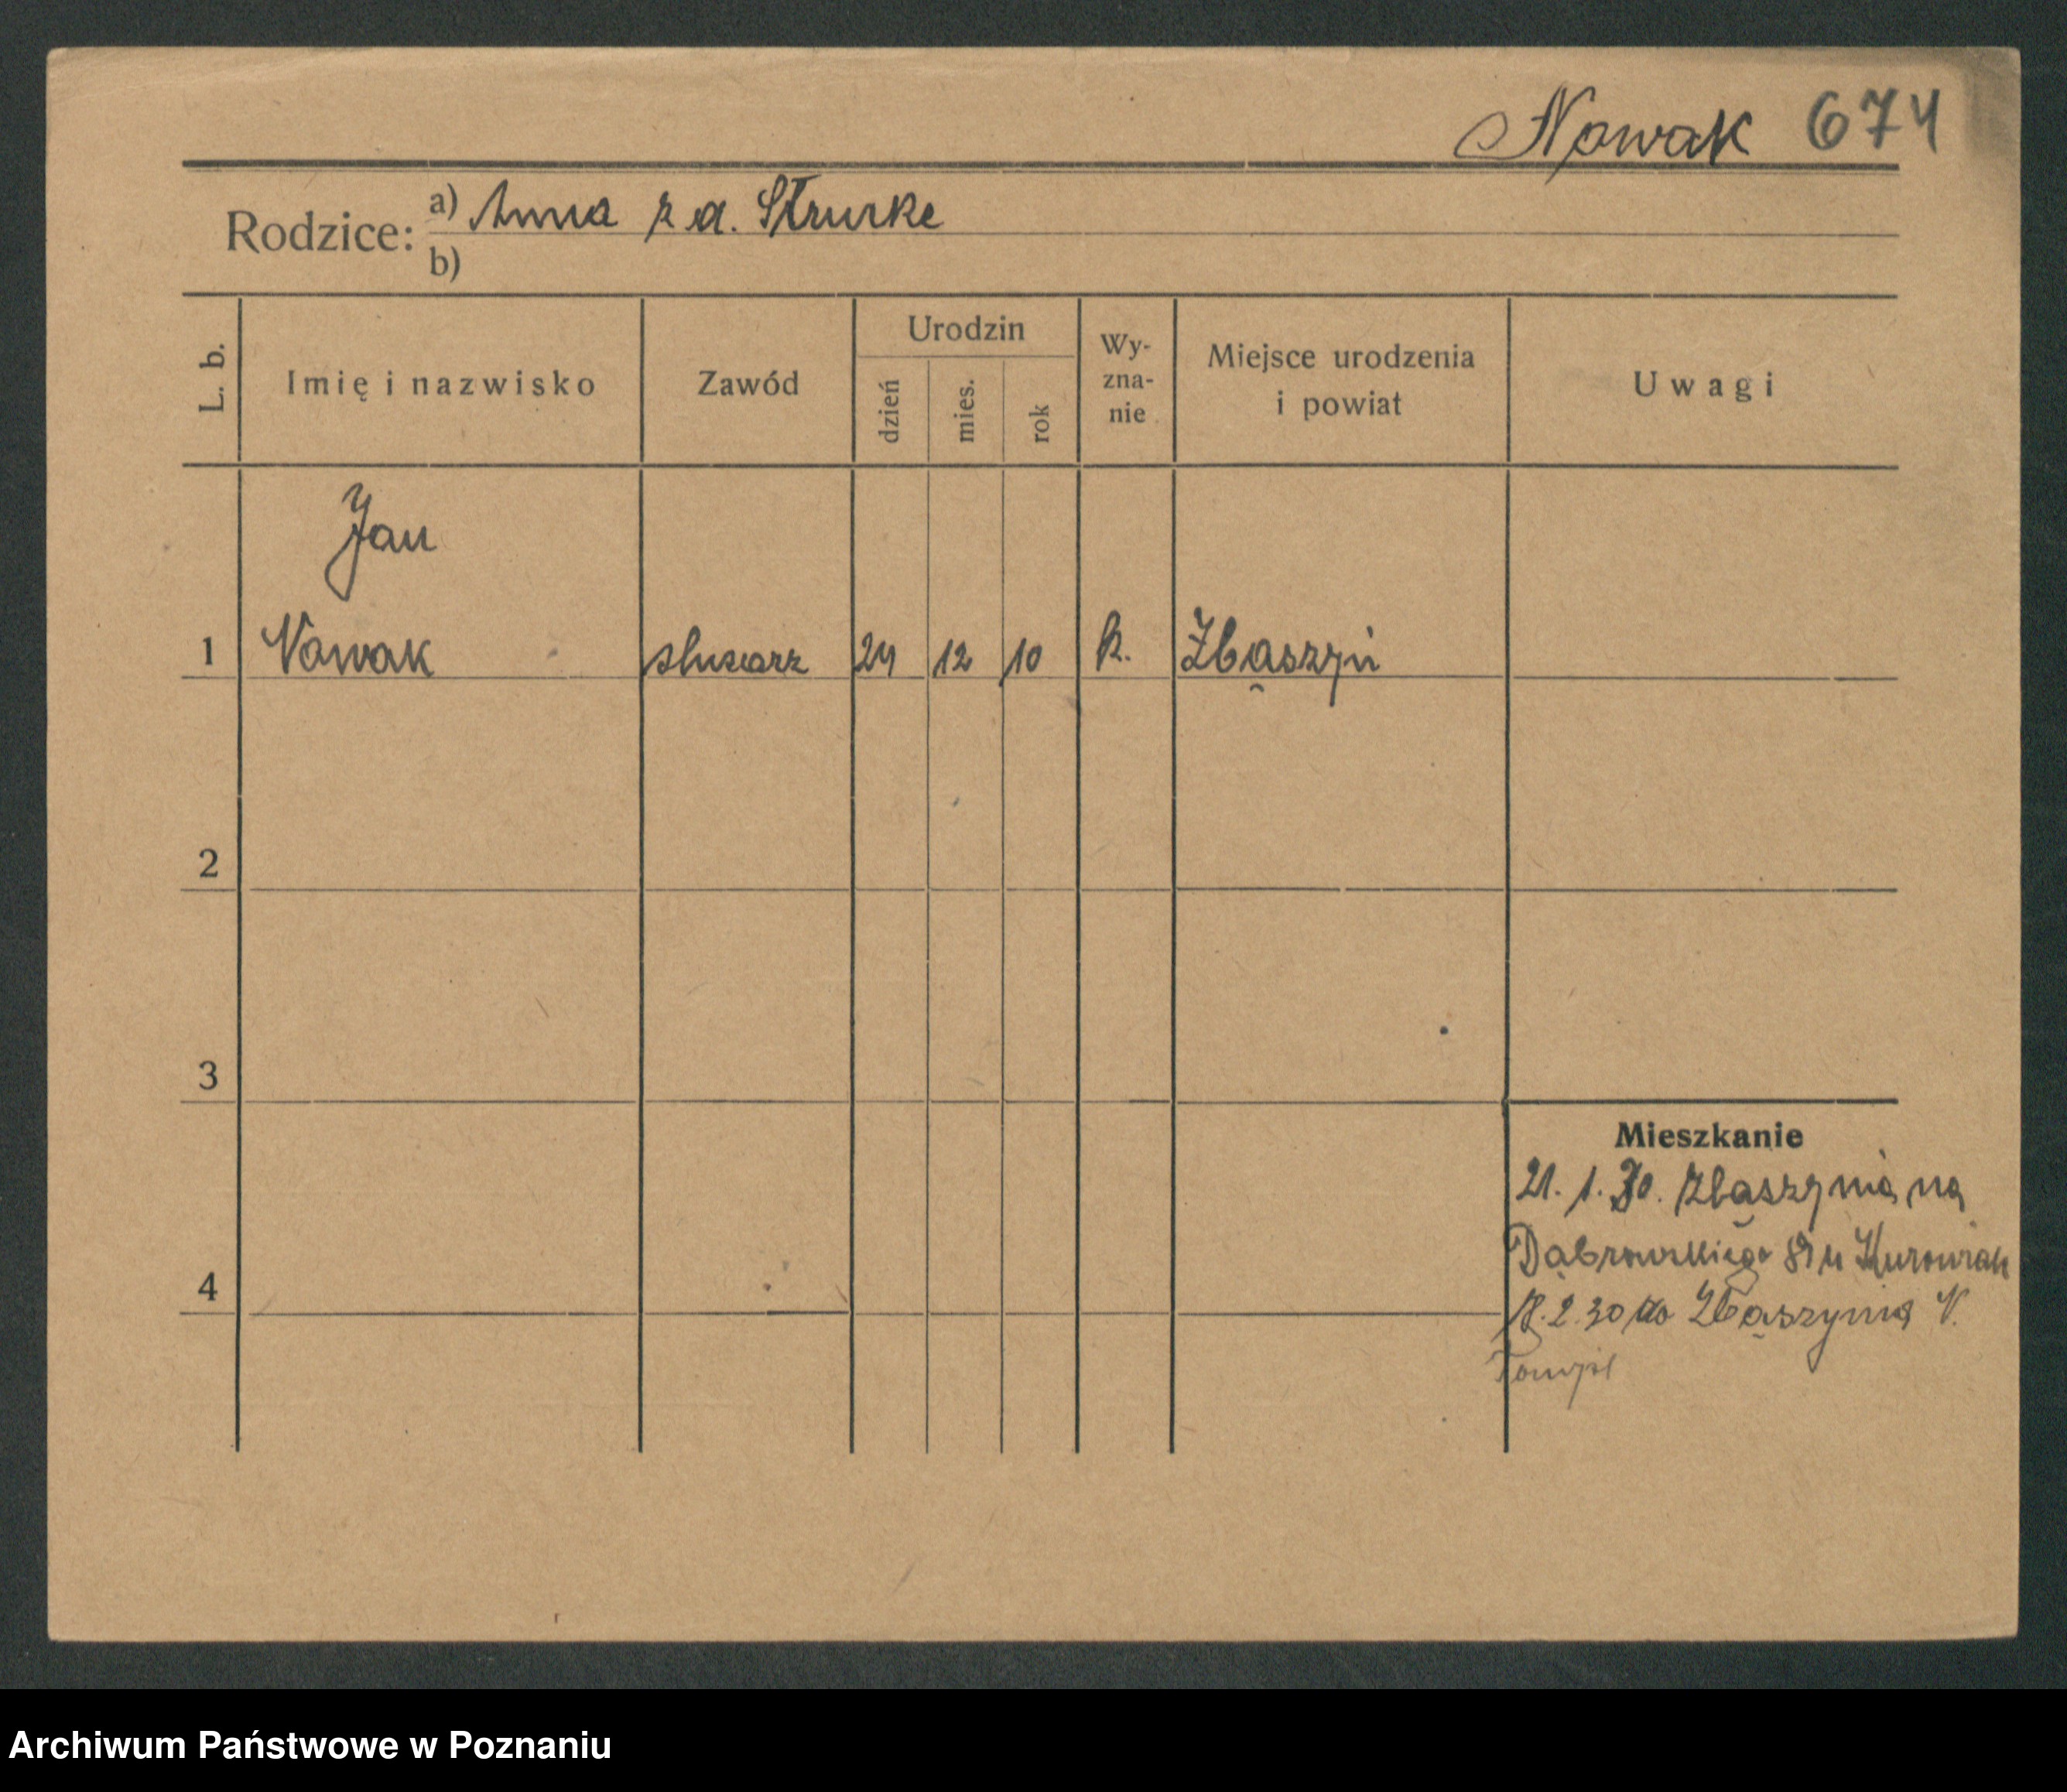 Nowak 674
Rodzice: a) Anna z d. Strurke
b)
L. b. Imię i nazwisko Zawód Urodzin dzień mies. rok Wy-zna-nie Miejsce urodzenia i powiat Uwagi
Jan
1 Nowak slusarz 24 12 10 k. Zbąszyń
2
3
Mieszkanie
21. 1. 30. Zbąszynia na
Dąbrowskiego u
4
18. 2. 30 do Zbąszynia N.
Archiwum Państwowe w Poznaniu